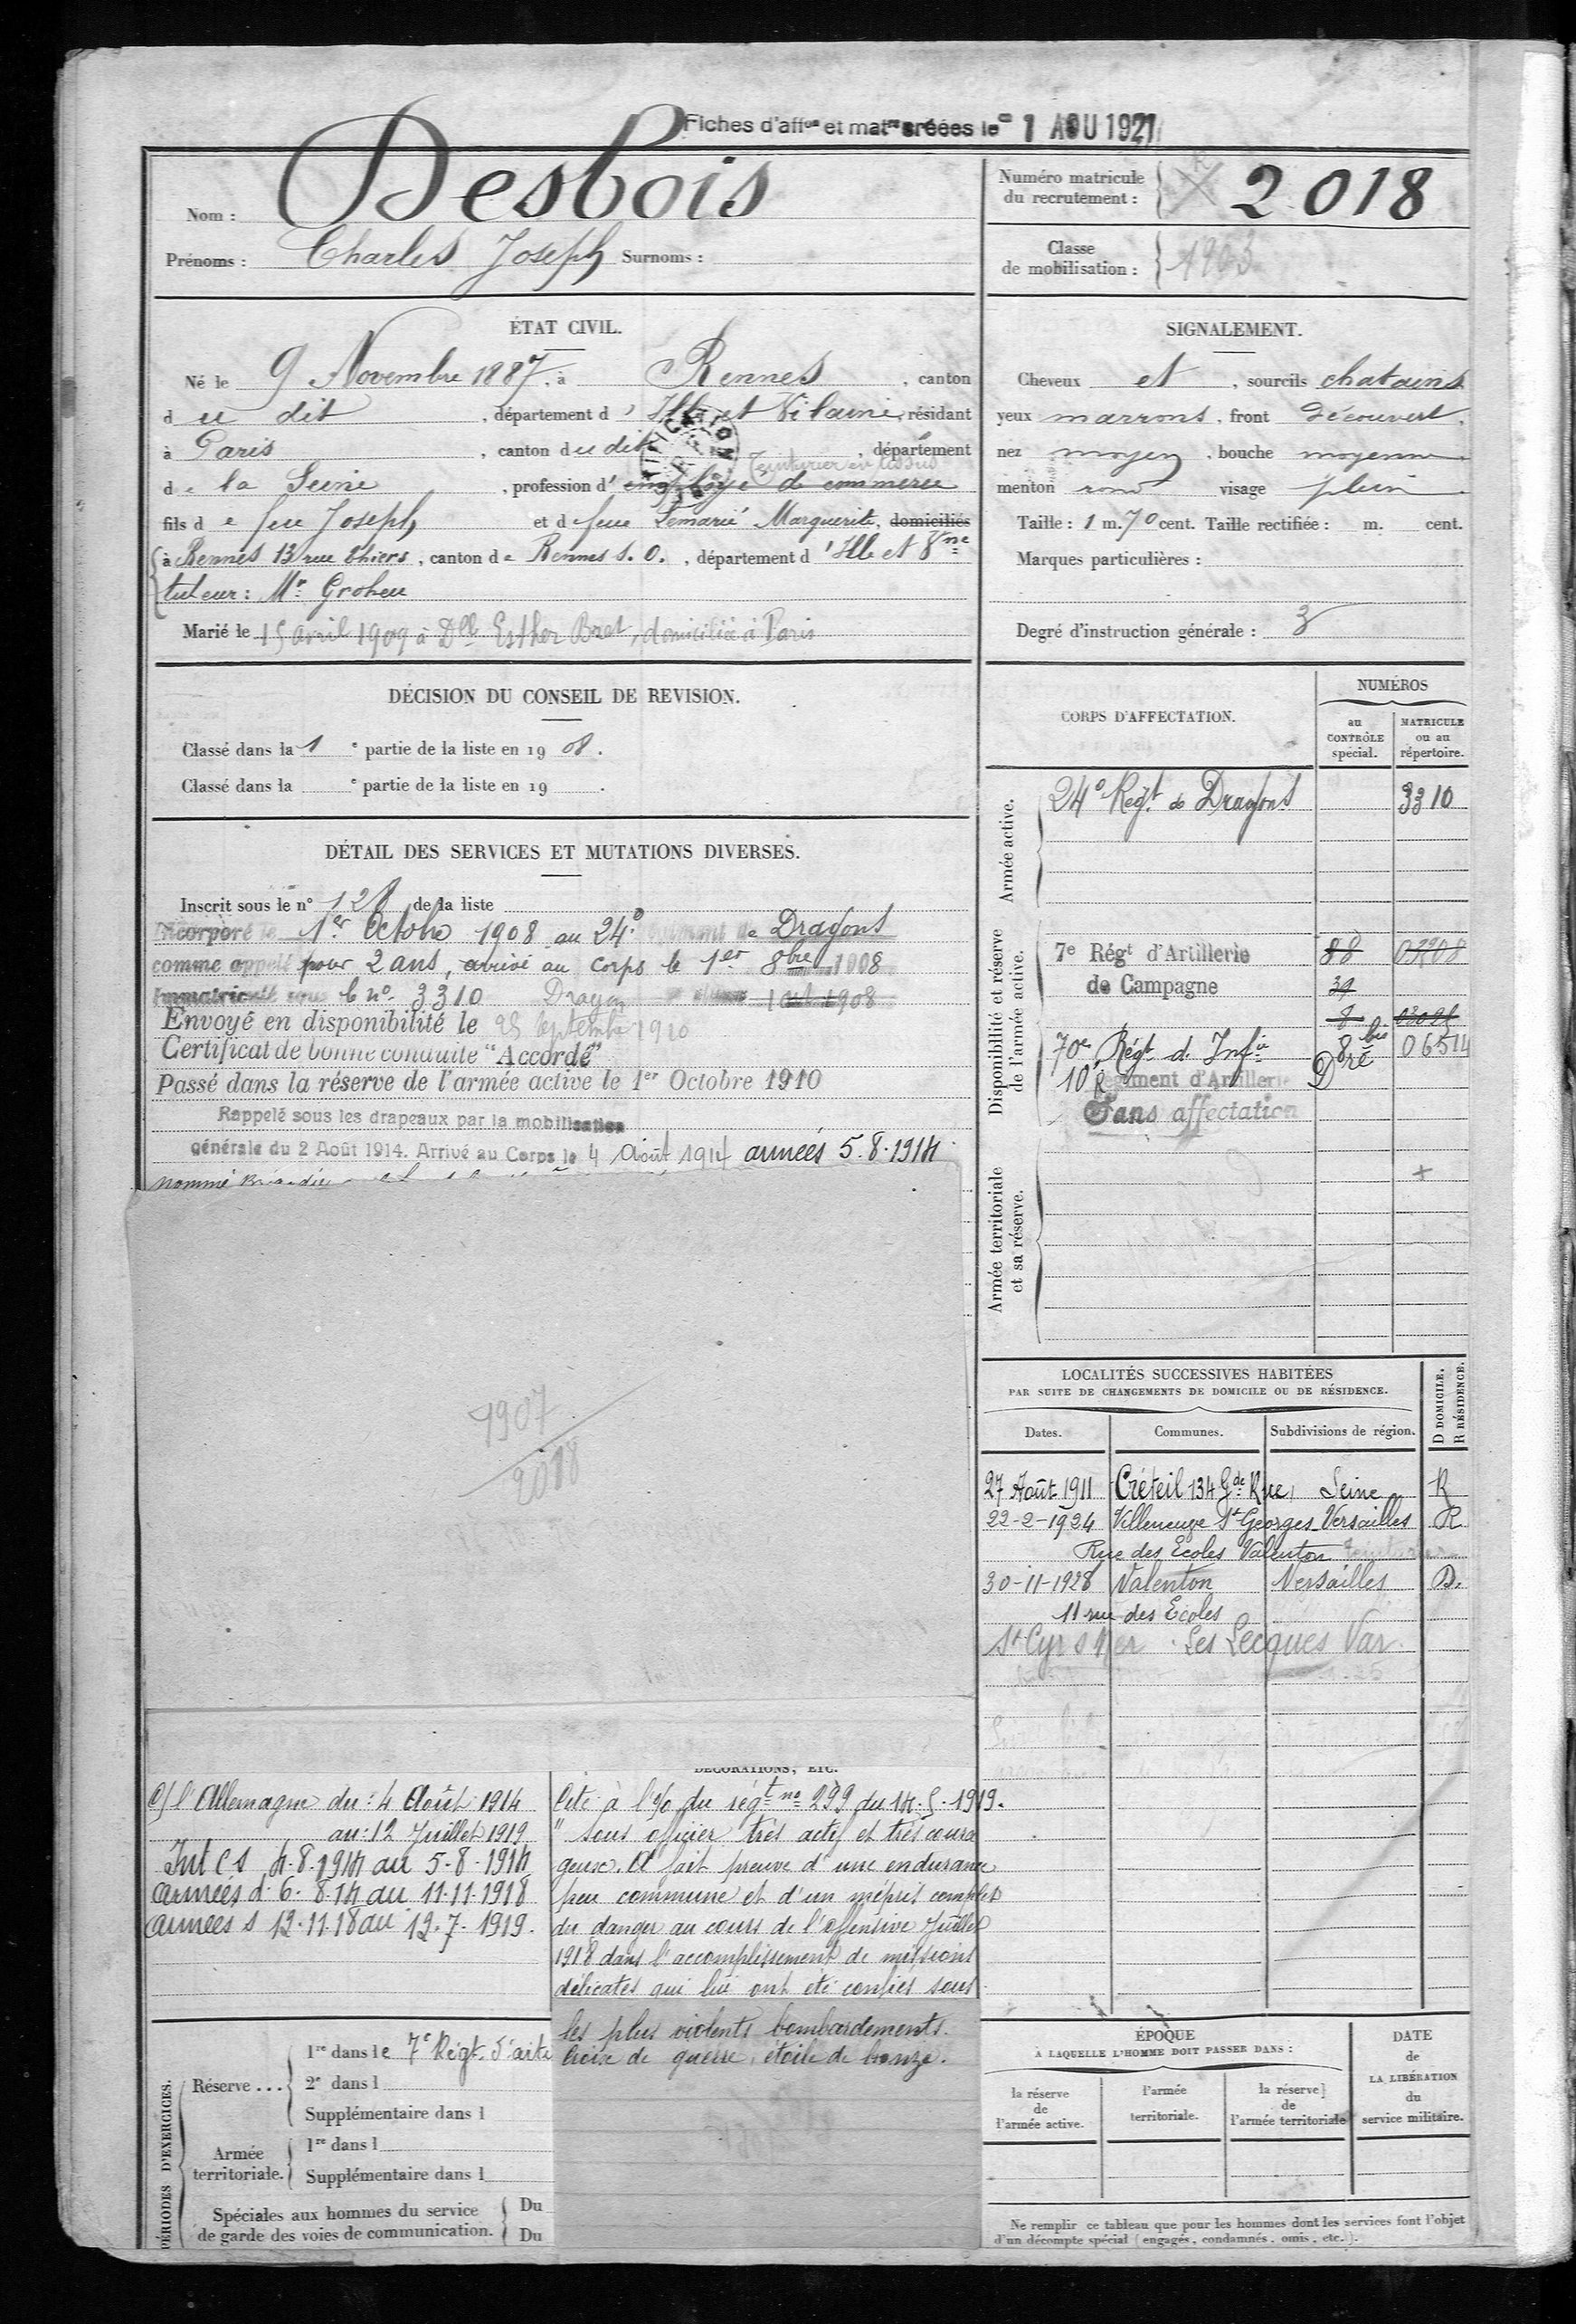 Fiches d'aff^on et mat^re créées le 1 AOU 1921
Nom : Desbois
Prénoms : Charles Joseph Surnoms :
Numéro matricule
du recrutement : 2018
Classe
de mobilisation : 1903
ÉTAT CIVIL.
Né le 9 Novembre 1887, à Rennes, canton
du dit, département d'Ille et Vilaine, résidant
à Paris, canton du dit, département
Teinturier en tissus
de la Seine, profession d'employé de commerce
fils de feu Joseph et de feue Lemarié Marguerite, domiciliés
à Rennes 13 rue Thiers, canton de Rennes S. O., département d'Ille et V^ne
tuteur : M^r Groheu
Marié le 15 avril 1909 à D^lle Esther Bret, domiciliée à Paris
SIGNALEMENT.
Cheveux et, sourcils chatains
yeux marrons, front découvert,
nez moyen, bouche moyenne
menton rond visage plein
Taille : 1 m. 70 cent. Taille rectifiée : m. cent.
Marques particulières :
Degré d'instruction générale : 3
DÉCISION DU CONSEIL DE REVISION.
Classé dans la 1^e partie de la liste en 1908.
Classé dans la ^e partie de la liste en 19 .
DÉTAIL DES SERVICES ET MUTATIONS DIVERSES.
Inscrit sous le n° 128 de la liste
Incorporé le 1^er Octobre 1908 au 24^e Régiment de Dragons
comme appelé pour 2 ans, arrivé au corps le 1^er 8bre 1908
Immatriculé sous le n° 3310 Dragon 1 Oct 1908
Envoyé en disponibilité le 25 septembre 1910
Certificat de bonne conduite "Accordé"
Passé dans la réserve de l'armée active le 1^er Octobre 1910
Rappelé sous les drapeaux par la mobilisation
générale du 2 Août 1914. Arrivé au Corps le 4 Août 1914 armées 5.8.1914
nommé
1907
2018
CORPS D'AFFECTATION.
NUMÉROS
au
CONTRÔLE
spécial.
MATRICULE
ou au
répertoire.
Armée active.
24^e Rég^t de Dragons 3310
Disponibilité et réserve
de l'armée active.
7^e Rég^t d'Artillerie 88 03908
de Campagne 39
8
70^e Rég^t d'Inf^ie 8 bis 06514
10^e Régiment d'Artillerie D^re
Sans affectation
Armée territoriale
et sa réserve.
LOCALITÉS SUCCESSIVES HABITÉES
PAR SUITE DE CHANGEMENTS DE DOMICILE OU DE RÉSIDENCE.
Dates. Communes. Subdivisions de région.
D DOMICILE.
R RÉSIDENCE.
27 Août 1911 Créteil 134 G^de Rue, Seine R
22-2-1924 Villeneuve S^t Georges Versailles R
Rue des Ecoles Valenton
30-11-1928 Valenton Versailles D.
11 rue des Ecoles
S^t Cyr s Mer. Les Lecques Var.
DÉCORATIONS, ETC.
c/ l'Allemagne du : 4 Août 1914
au : 12 Juillet 1919
Int C S 4.8.1914 au 5.8.1914
Armées d. 6.8.14 au 11.11.1918
Armées s 12.11.18 au 12.7.1919.
Cité à l'o/ du rég^t n° 299 du 14.5.1919.
" sous officier très actif et très coura
geux. A fait preuve d'une endurance
peu commune et d'un mépris complet
du danger au cours de l'offensive Juillet
1918 dans l'accomplissement de missions
délicates qui lui ont été confiées sous
les plus violents bombardements.
Croix de guerre, étoile de bronze.
PÉRIODES D'EXERCICES.
Réserve ...
1^re dans le 7^e Régt. d'art^ie
2^e dans l
Supplémentaire dans l
Armée
territoriale.
1^re dans l
Supplémentaire dans l
Spéciales aux hommes du service
de garde des voies de communication.
Du
Du
ÉPOQUE
À LAQUELLE L'HOMME DOIT PASSER DANS :
la réserve
de
l'armée active.
l'armée
territoriale.
la réserve
de
l'armée territoriale
DATE
de
LA LIBÉRATION
du
service militaire.
Ne remplir ce tableau que pour les hommes dont les services font l'objet
d'un décompte spécial (engagés, condamnés, omis, etc.).